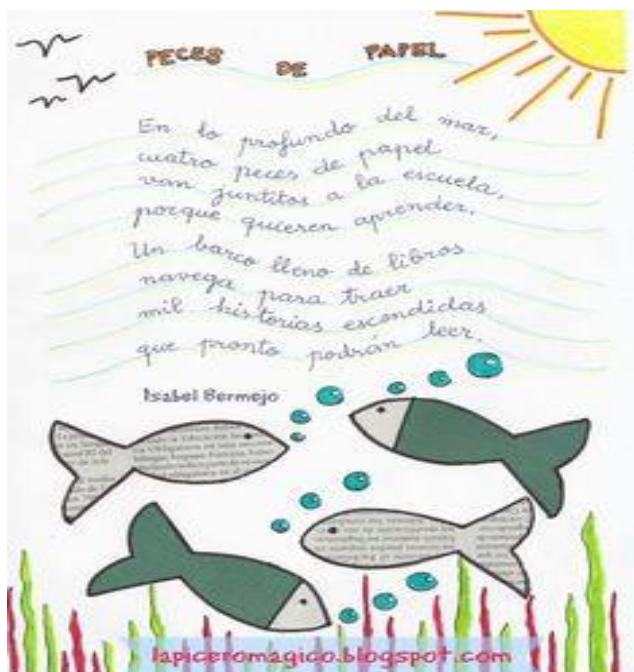 PECES DE PAPEL
En lo profundo del mar,
cuatro peces de papel
van juntitos a la escuela,
porque quieren aprender.
Un barco lleno de libros
navega para traer
mil historias escondidas
que pronto podrán leer.
Isabel Bermejo
lapiceromagico.blogspot.com